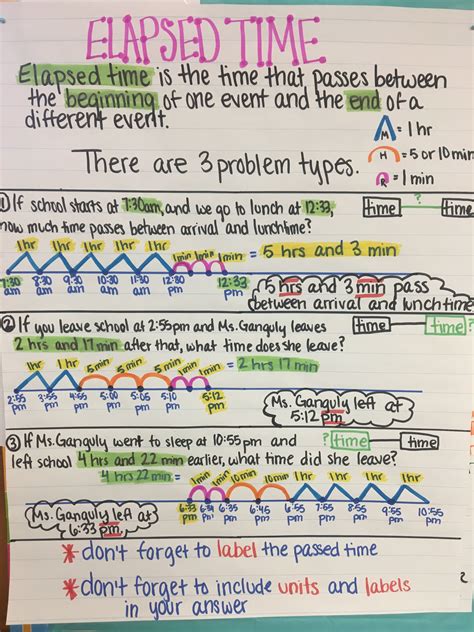 ELAPSED TIME
Elapsed time is the time that passes between
the beginning of one event and the end of a
different event.
M = 1 hr
H = 5 or 10 min
R = 1 min
There are 3 problem types.
① If school starts at 7:30am, and we go to lunch at 12:33,
how much time passes between arrival and lunchtime?
time ? time
1hr 1hr 1hr 1hr 1hr 1min 1min 1min = 5 hrs and 3 min
7:30 am 8:30 am 9:30 am 10:30 am 11:30 am 12:30 pm 12:33 pm
5 hrs and 3 min pass
between arrival and lunchtime
② If you leave school at 2:55pm and Ms. Ganguly leaves
2 hrs and 17 min after that, what time does she leave?
time time?
1hr 1hr 5min 5min 5min 1min 1min = 2 hrs 17 min
2:55 pm 3:55 pm 4:55 pm 5:00 pm 5:05 pm 5:10 pm 5:12 pm
Ms. Ganguly left at
5:12 pm
③ If Ms. Ganguly went to sleep at 10:55 pm and
left school 4 hrs and 22 min earlier, what time did she leave?
? time time
4 hrs 22 min = 1min 1min 10min 10min 1hr 1hr 1hr 1hr
6:33 pm 6:34 pm 6:35 pm 6:45 pm 6:55 pm 7:55 pm 8:55 pm 9:55 pm 10:55 pm
Ms. Ganguly left at
6:33 pm
* don't forget to label the passed time
* don't forget to include units and labels
in your answer
2